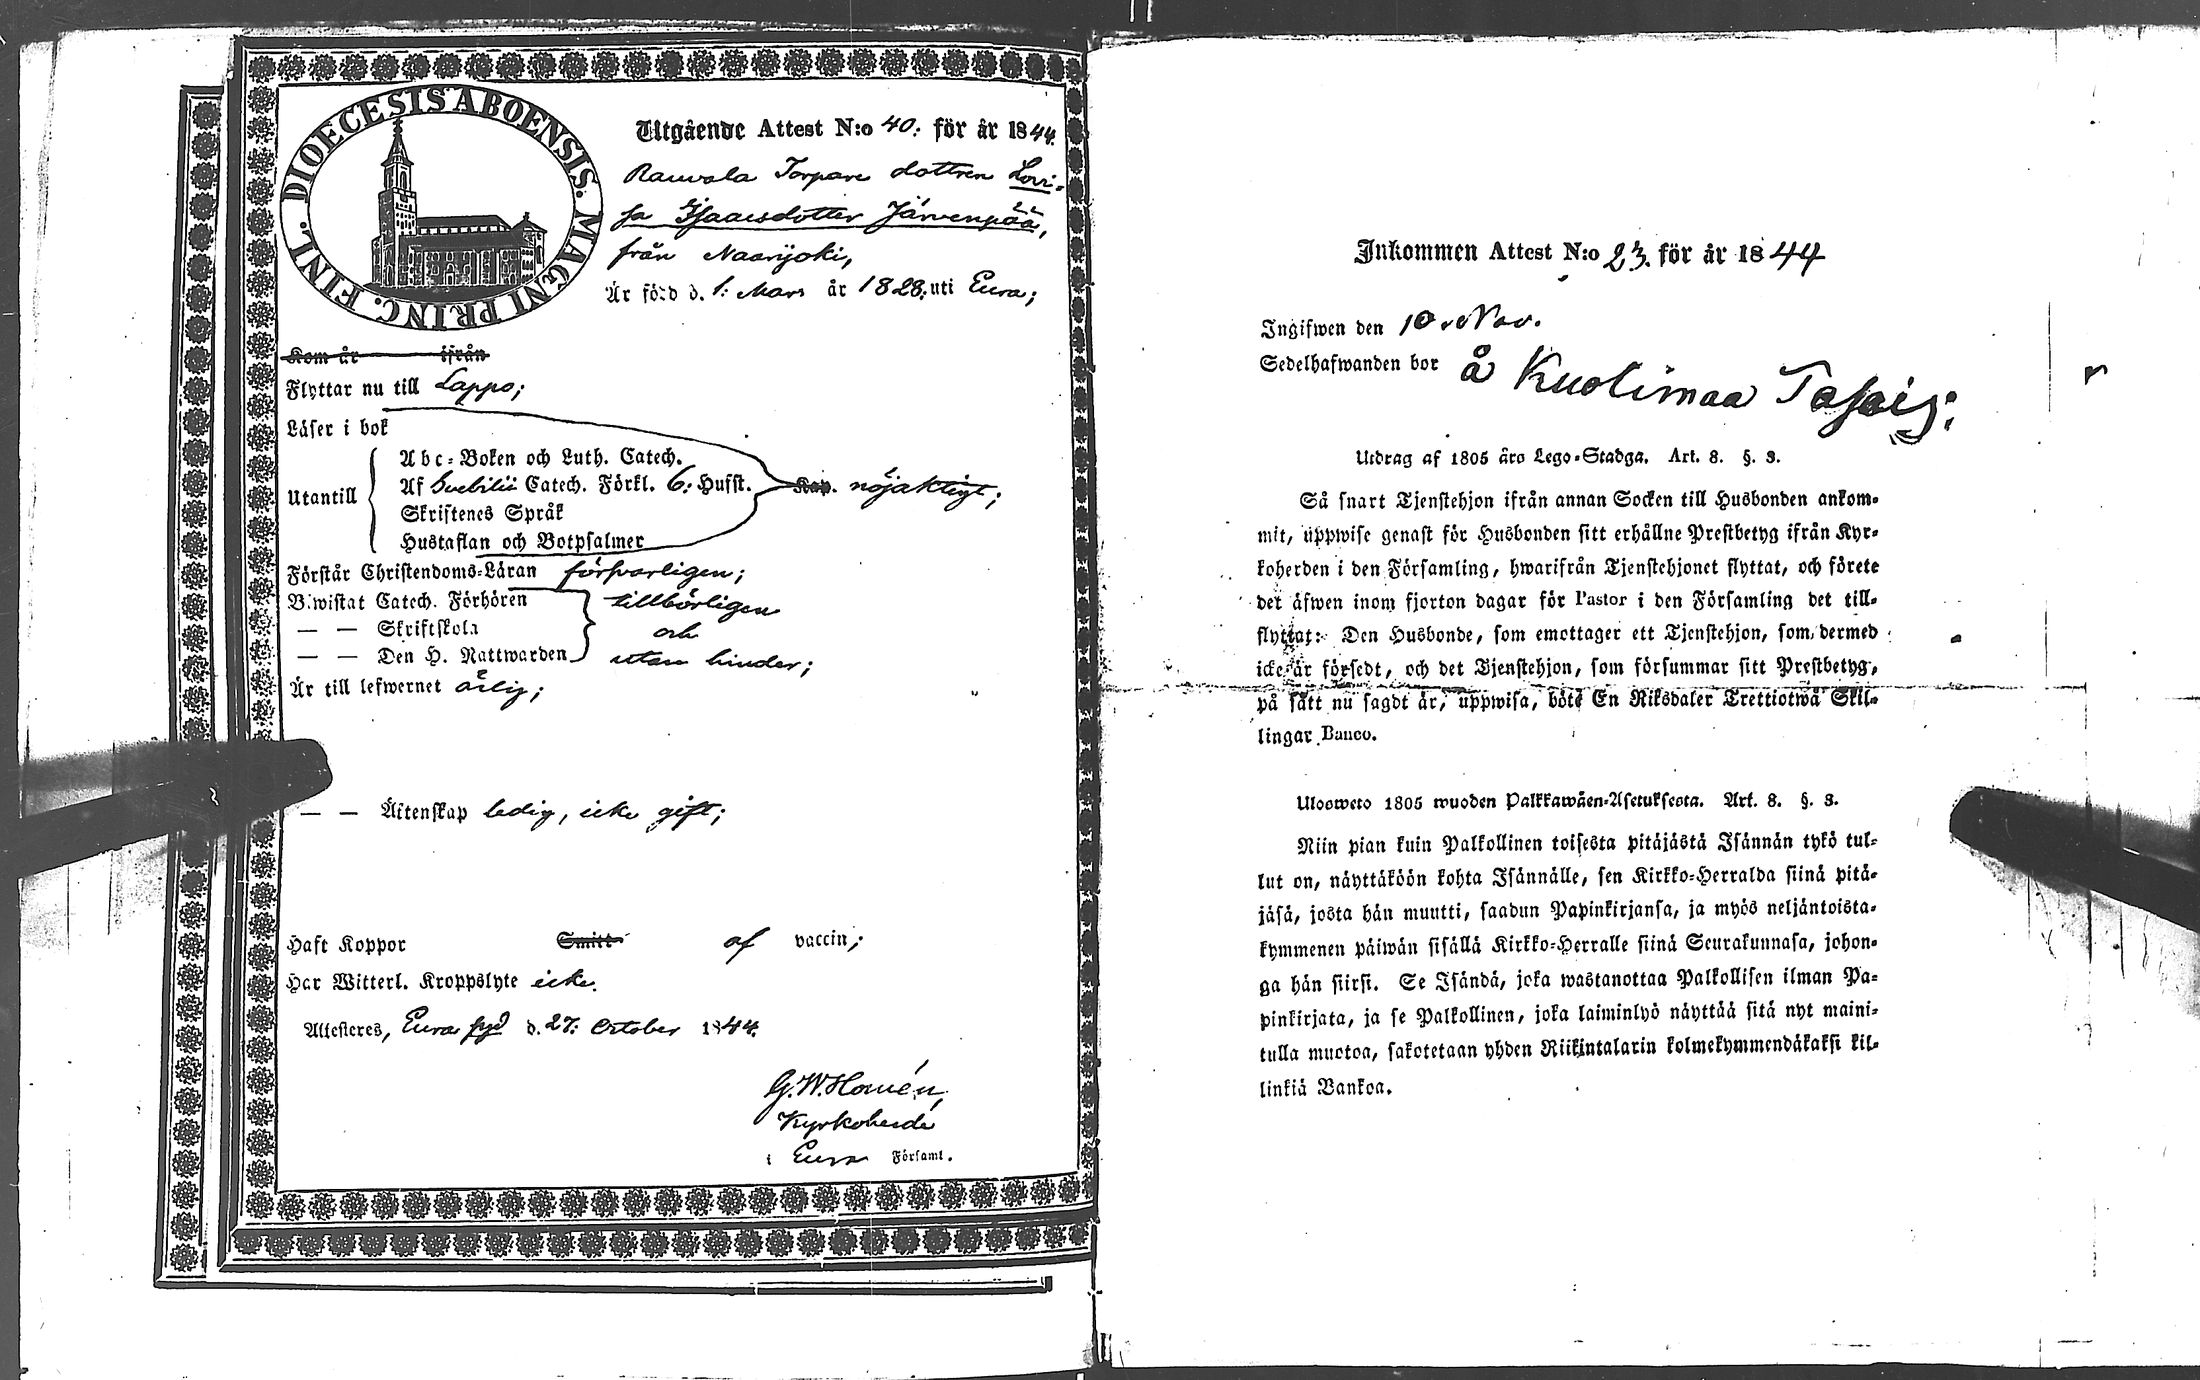 DIOECESIS ABOENSIS. MAGNI PRINC. FINL.
Utgående Attest N:o 40: för år 1844.
Rauvola Torpare dottren Lovi-
sa Isaacsdotter Järvenpää,
från Naarijoki,
Är född d. 1: Mars år 1828: uti Eura;
Kom år ifrån
Flyttar nu till Lappo;
Läser i bok
Utantill
Abc-Boken och Luth. Catech.
Af Svebilii Catech. Förkl. 6: Hufst. Kap. nöjaktigt;
Skriftenes Språk
Hustaflan och Botpsalmer
Förstår Christendoms-Läran försvarligen;
Bewistat Catech. Förhören tillbörligen
— — Skriftskola och
— — Den H. Nattwarden utan hinder;
Är till lefwernet ärlig;
— — Äktenskap ledig, icke gift;
Haft Koppor Smitt af vaccin;
Har Witterl. Kroppslyte icke.
Attesteres, Eura d. 27: October 1844.
G. W. Homén,
Kyrkoherde
i Eura Församl.
Inkommen Attest N:o 23. för år 1844
Ingifwen den 10 Nov.
Sedelhafwanden bor å Kuolimaa
Utdrag af 1805 års Lego-Stadga. Art. 8. §. 3.
Så snart Tjenstehjon ifrån annan Socken till Husbonden ankom-
mit, uppwise genast för Husbonden sitt erhållne Prestbetyg ifrån Kyr-
koherden i den Församling, hwarifrån Tjenstehjonet flyttat, och förete
det äfwen inom fjorton dagar för Pastor i den Församling det till-
flyttat: Den Husbonde, som emottager ett Tjenstehjon, som dermed
icke är försedt, och det Tjenstehjon, som försummar sitt Prestbetyg,
på sätt nu sagdt är, uppwisa, böte En Riksdaler Trettiotwå Skil-
lingar Banco.
Ulosweto 1805 wuoden Palkkawäen-Asetuksesta. Art. 8. §. 3.
Niin pian kuin Palkollinen toisesta pitäjästä Isännän tykö tul-
lut on, näyttäköön kohta Isännälle, sen Kirkko-Herralda siinä pitä-
jäsä, josta hän muutti, saadun Papinkirjansa, ja myös neljäntoista-
kymmenen päiwän sisällä Kirkko-Herralle siinä Seurakunnasa, johon-
ga hän siirsi. Se Isändä, joka wastanottaa Palkollisen ilman Pa-
pinkirjata, ja se Palkollinen, joka laiminlyö näyttää sitä nyt maini-
tulla muotoa, sakotetaan yhden Riikintalarin kolmekymmendäkaksi kil-
linkiä Bankoa.